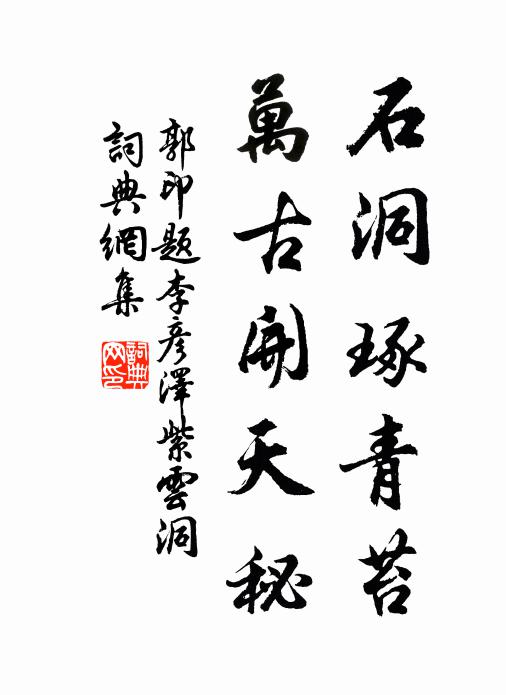 石洞琢青苔
萬古開天秘
郭印題李彥澤紫雲洞
詞典網集
詞典网印